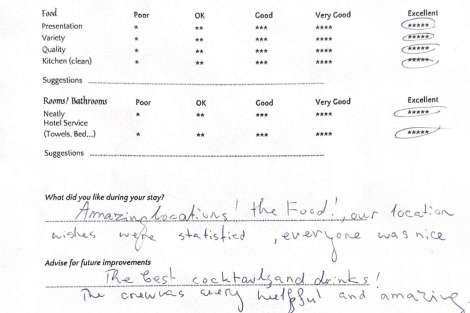 Food Poor OK Good Very Good Excellent
Presentation * ** *** **** *****
Variety * ** *** **** *****
Quality * ** *** **** *****
Kitchen (clean) * ** *** **** *****
Suggestions
Rooms/ Bathrooms Poor OK Good Very Good Excellent
Neatly * ** *** **** *****
Hotel Service
(Towels, Bed...) * ** *** **** *****
Suggestions
What did you like during your stay?
Amazing locations! the Food!, our location
wishes were statisfied, everyone was nice
Advise for future improvements
The best cocktails and drinks!
The crew was very helpful and amazing.